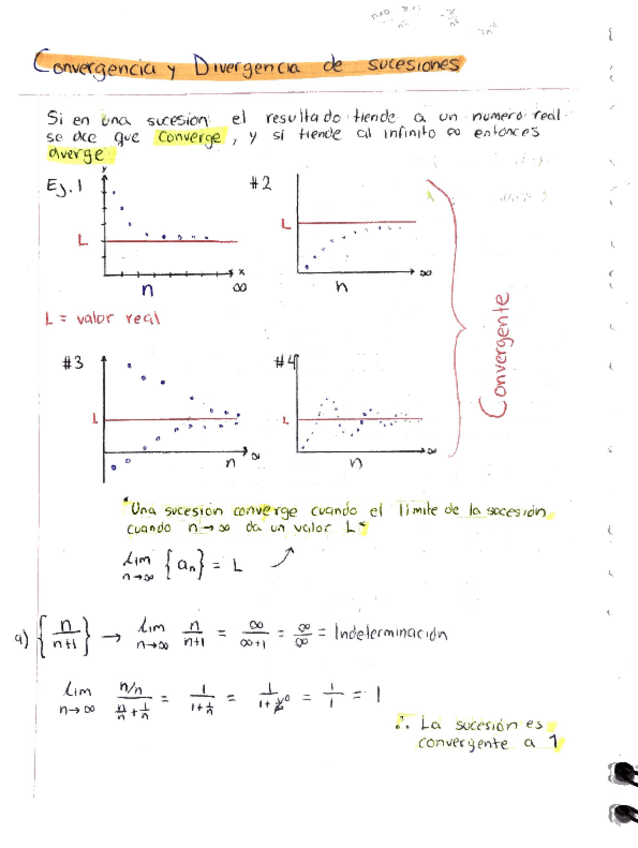 Convergencia y Divergencia de sucesiones
Si en una sucesion el resultado tiende a un numero real
se dce que converge, y si tiende al infinito ∞ entonces
diverge
Ej. 1
y
L
x
n
∞
#2
L
∞
n
L = valor real
#3
L
∞
n
#4
L
∞
n
Convergente
"Una sucesión converge cuando el límite de la sucesión
cuando n→∞ da un valor L"
lim n→∞ {an} = L
a) {n/n+1} → lim n→∞ n/n+1 = ∞/∞+1 = ∞/∞ = Indeterminación
lim n→∞ n/n / n/n + 1/n = 1/1+1/n = 1/1+1/∞ 0 = 1/1 = 1
∴ La sucesión es
convergente a 1